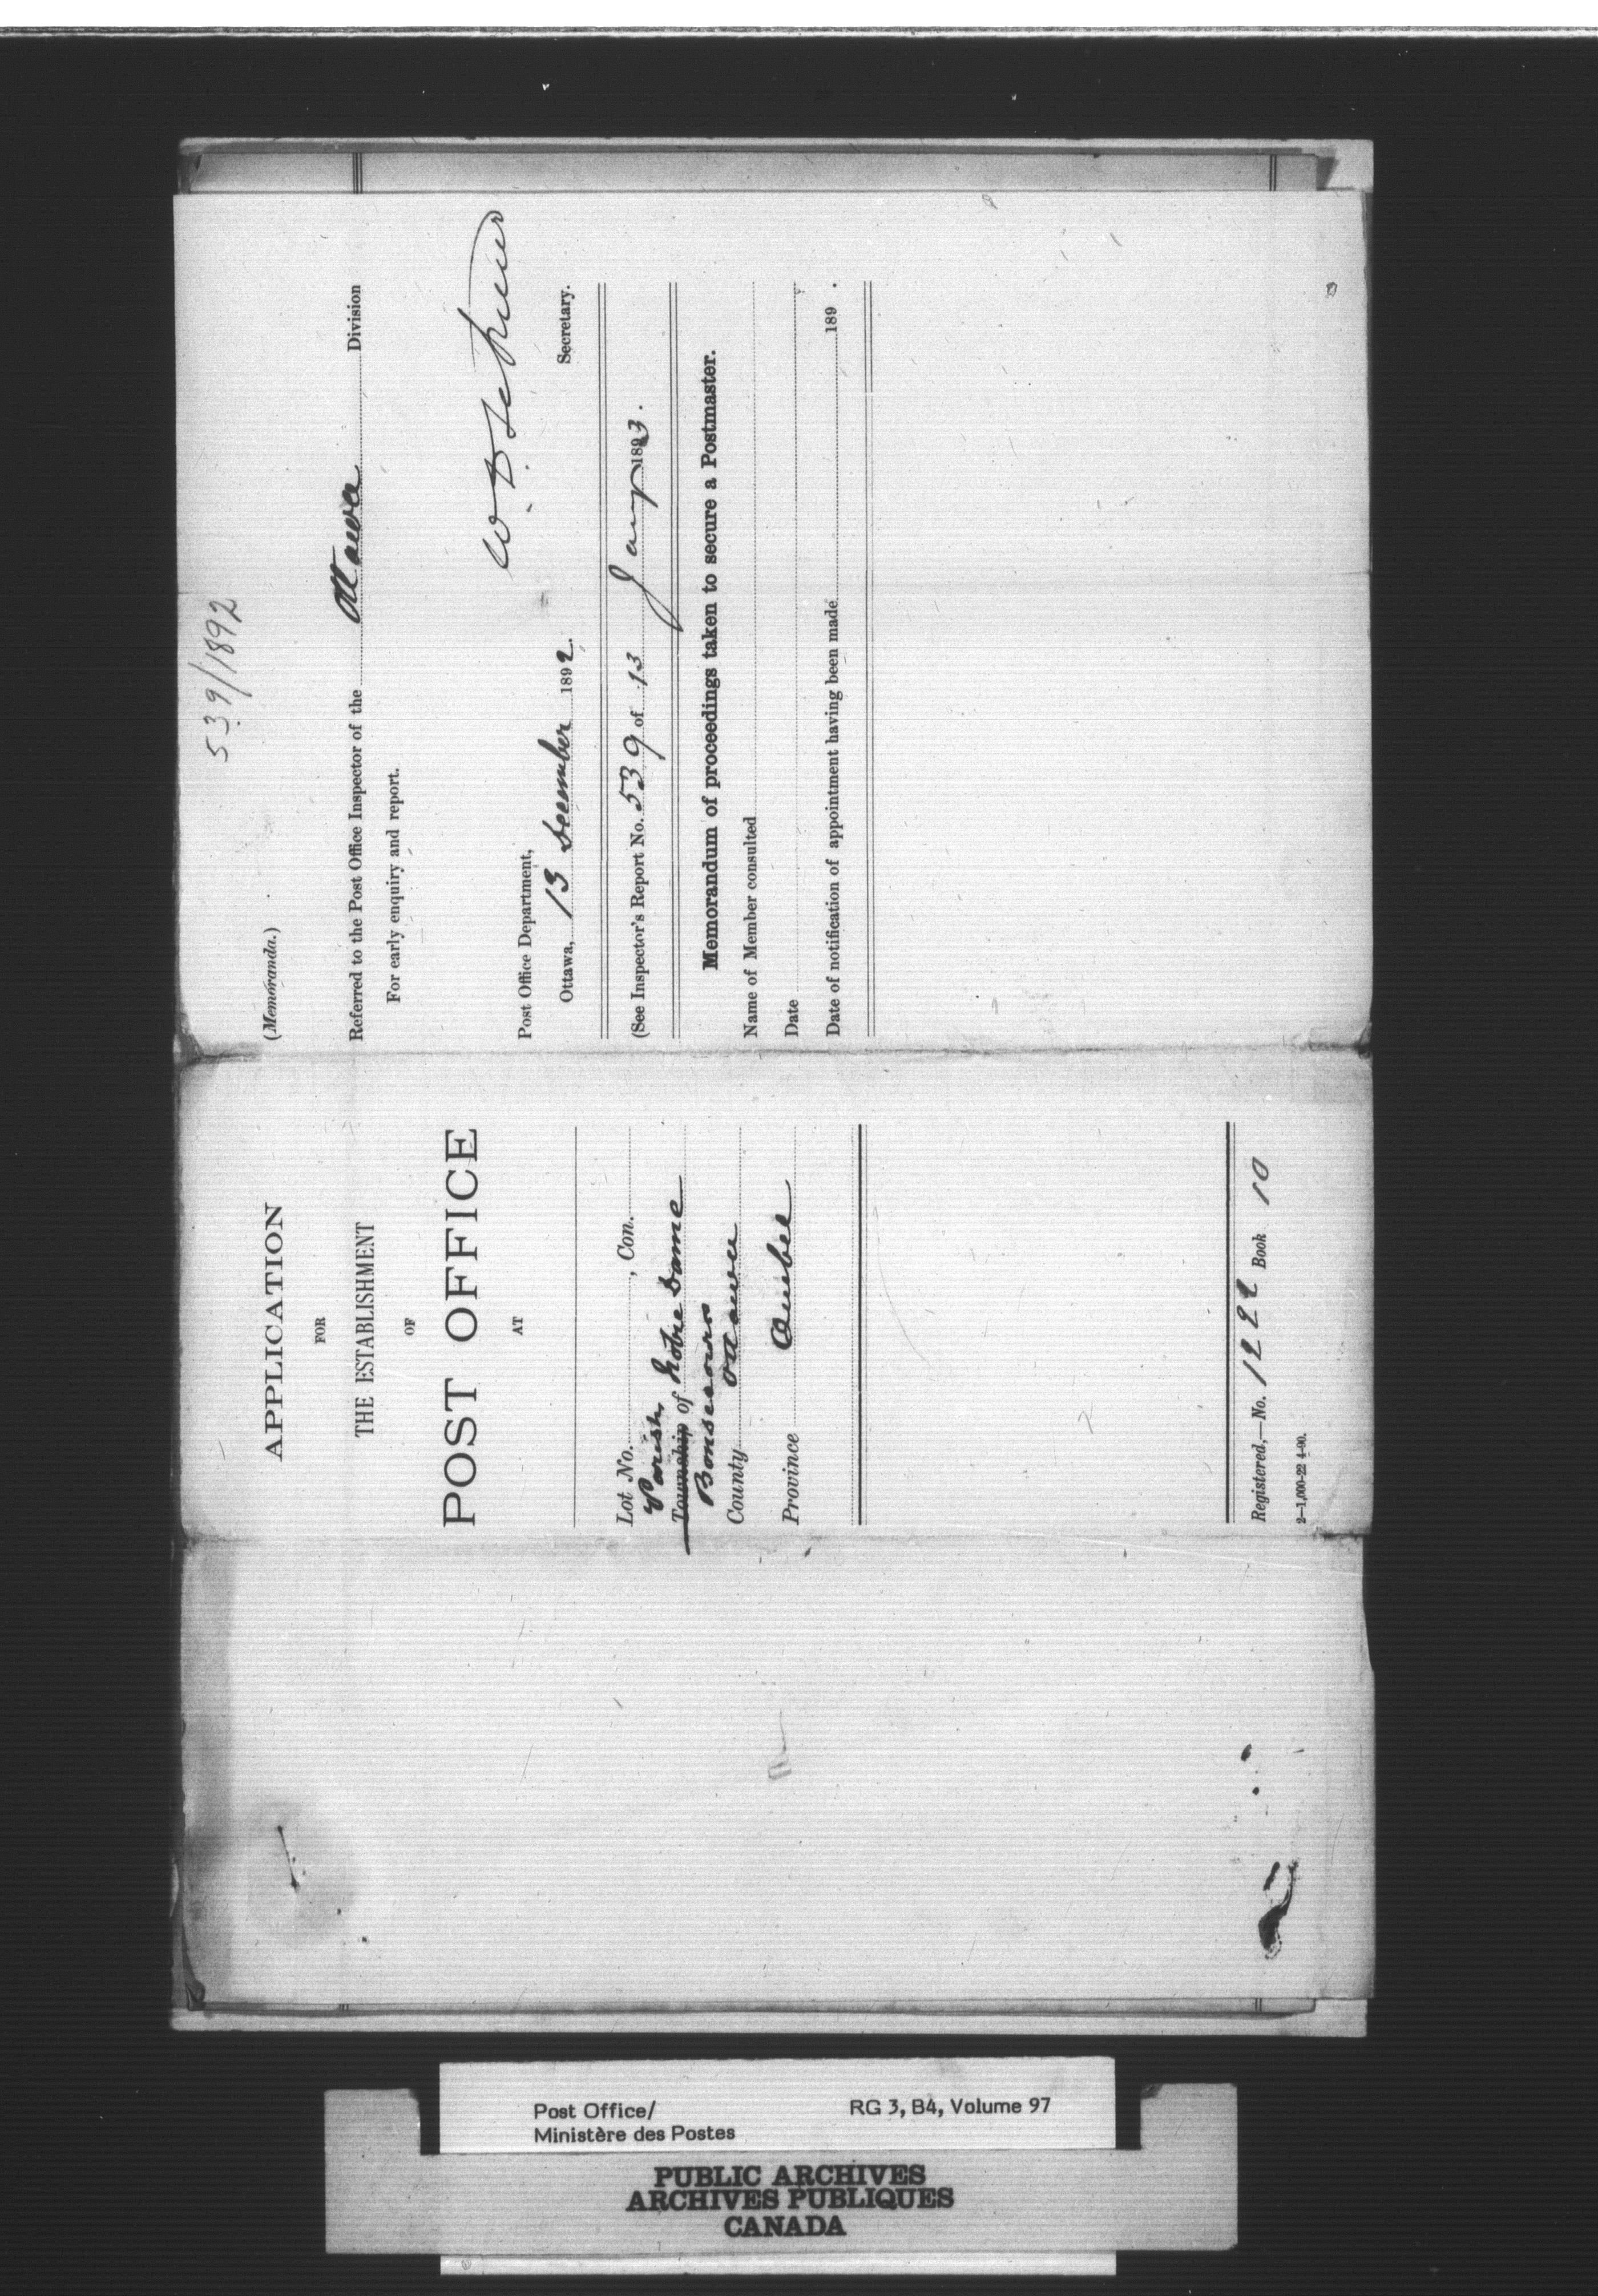 APPLICATION
FOR
THE ESTABLISHMENT
OF
POST OFFICE
AT
Lot No. , Con.
Parish
Township of Notre Dame
Bonsecours
County Ottawa
Province Quebec
Registered,—No. 1222 Book 10
2—1,000-22-4-90.
539/1892
(Memoranda.)
Referred to the Post Office Inspector of the Ottawa Division
For early enquiry and report.
Post Office Department,
Ottawa, 13 December 1892.
Secretary.
(See Inspector's Report No. 539 of 13 Jany 1893.
Memorandum of proceedings taken to secure a Postmaster.
Name of Member consulted
Date
Date of notification of appointment having been made 189 .
Post Office/ RG 3, B4, Volume 97
Ministère des Postes
PUBLIC ARCHIVES
ARCHIVES PUBLIQUES
CANADA